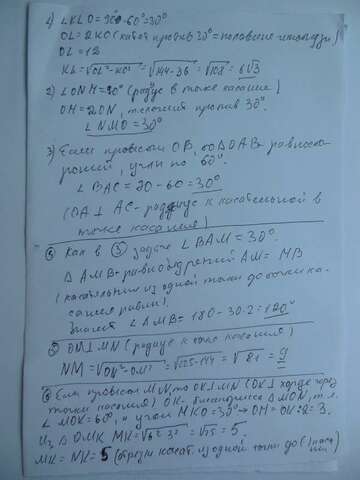 1) ∠KLO = 90-60°=30°
OL = 2KO (катет против 30° = половине гипотенузы)
OL = 12
KL = √OL²-KO² = √144-36 = √108 = 6√3
2) ∠ONM = 90° (радиус в точке касания)
OM = 2ON, лежит против 30°.
∠NMO = 30°
3) Если провести OB, то ΔOAB равносто-
ронний, углы по 60°.
∠BAC = 90-60 = 30°
(OA⊥AC - радиус к касательной в
точке касания)
5 Как в 3 задаче ∠BAM = 30°.
ΔAMB = равнобедрений AM = MB
(касательные из одной точки до точки ка-
сания равны).
Значит ∠AMB = 180-30·2 = 120°
OM⊥MN (радиус к точке касания)
NM = √ON²-OM² = √225-144 = √81 = 9
6 Если провести MN, то OK⊥MN (OK⊥ хорде через
точки касания) OK - биссектриса ΔMON, т.к.
∠MOK = 60°, и угол MKO = 30° → OM = OK:2 = 3.
Из ΔOMK MK = √6²-3² = √25 = 5.
MK = NK = 5 (отрезки касат. из одной точки до